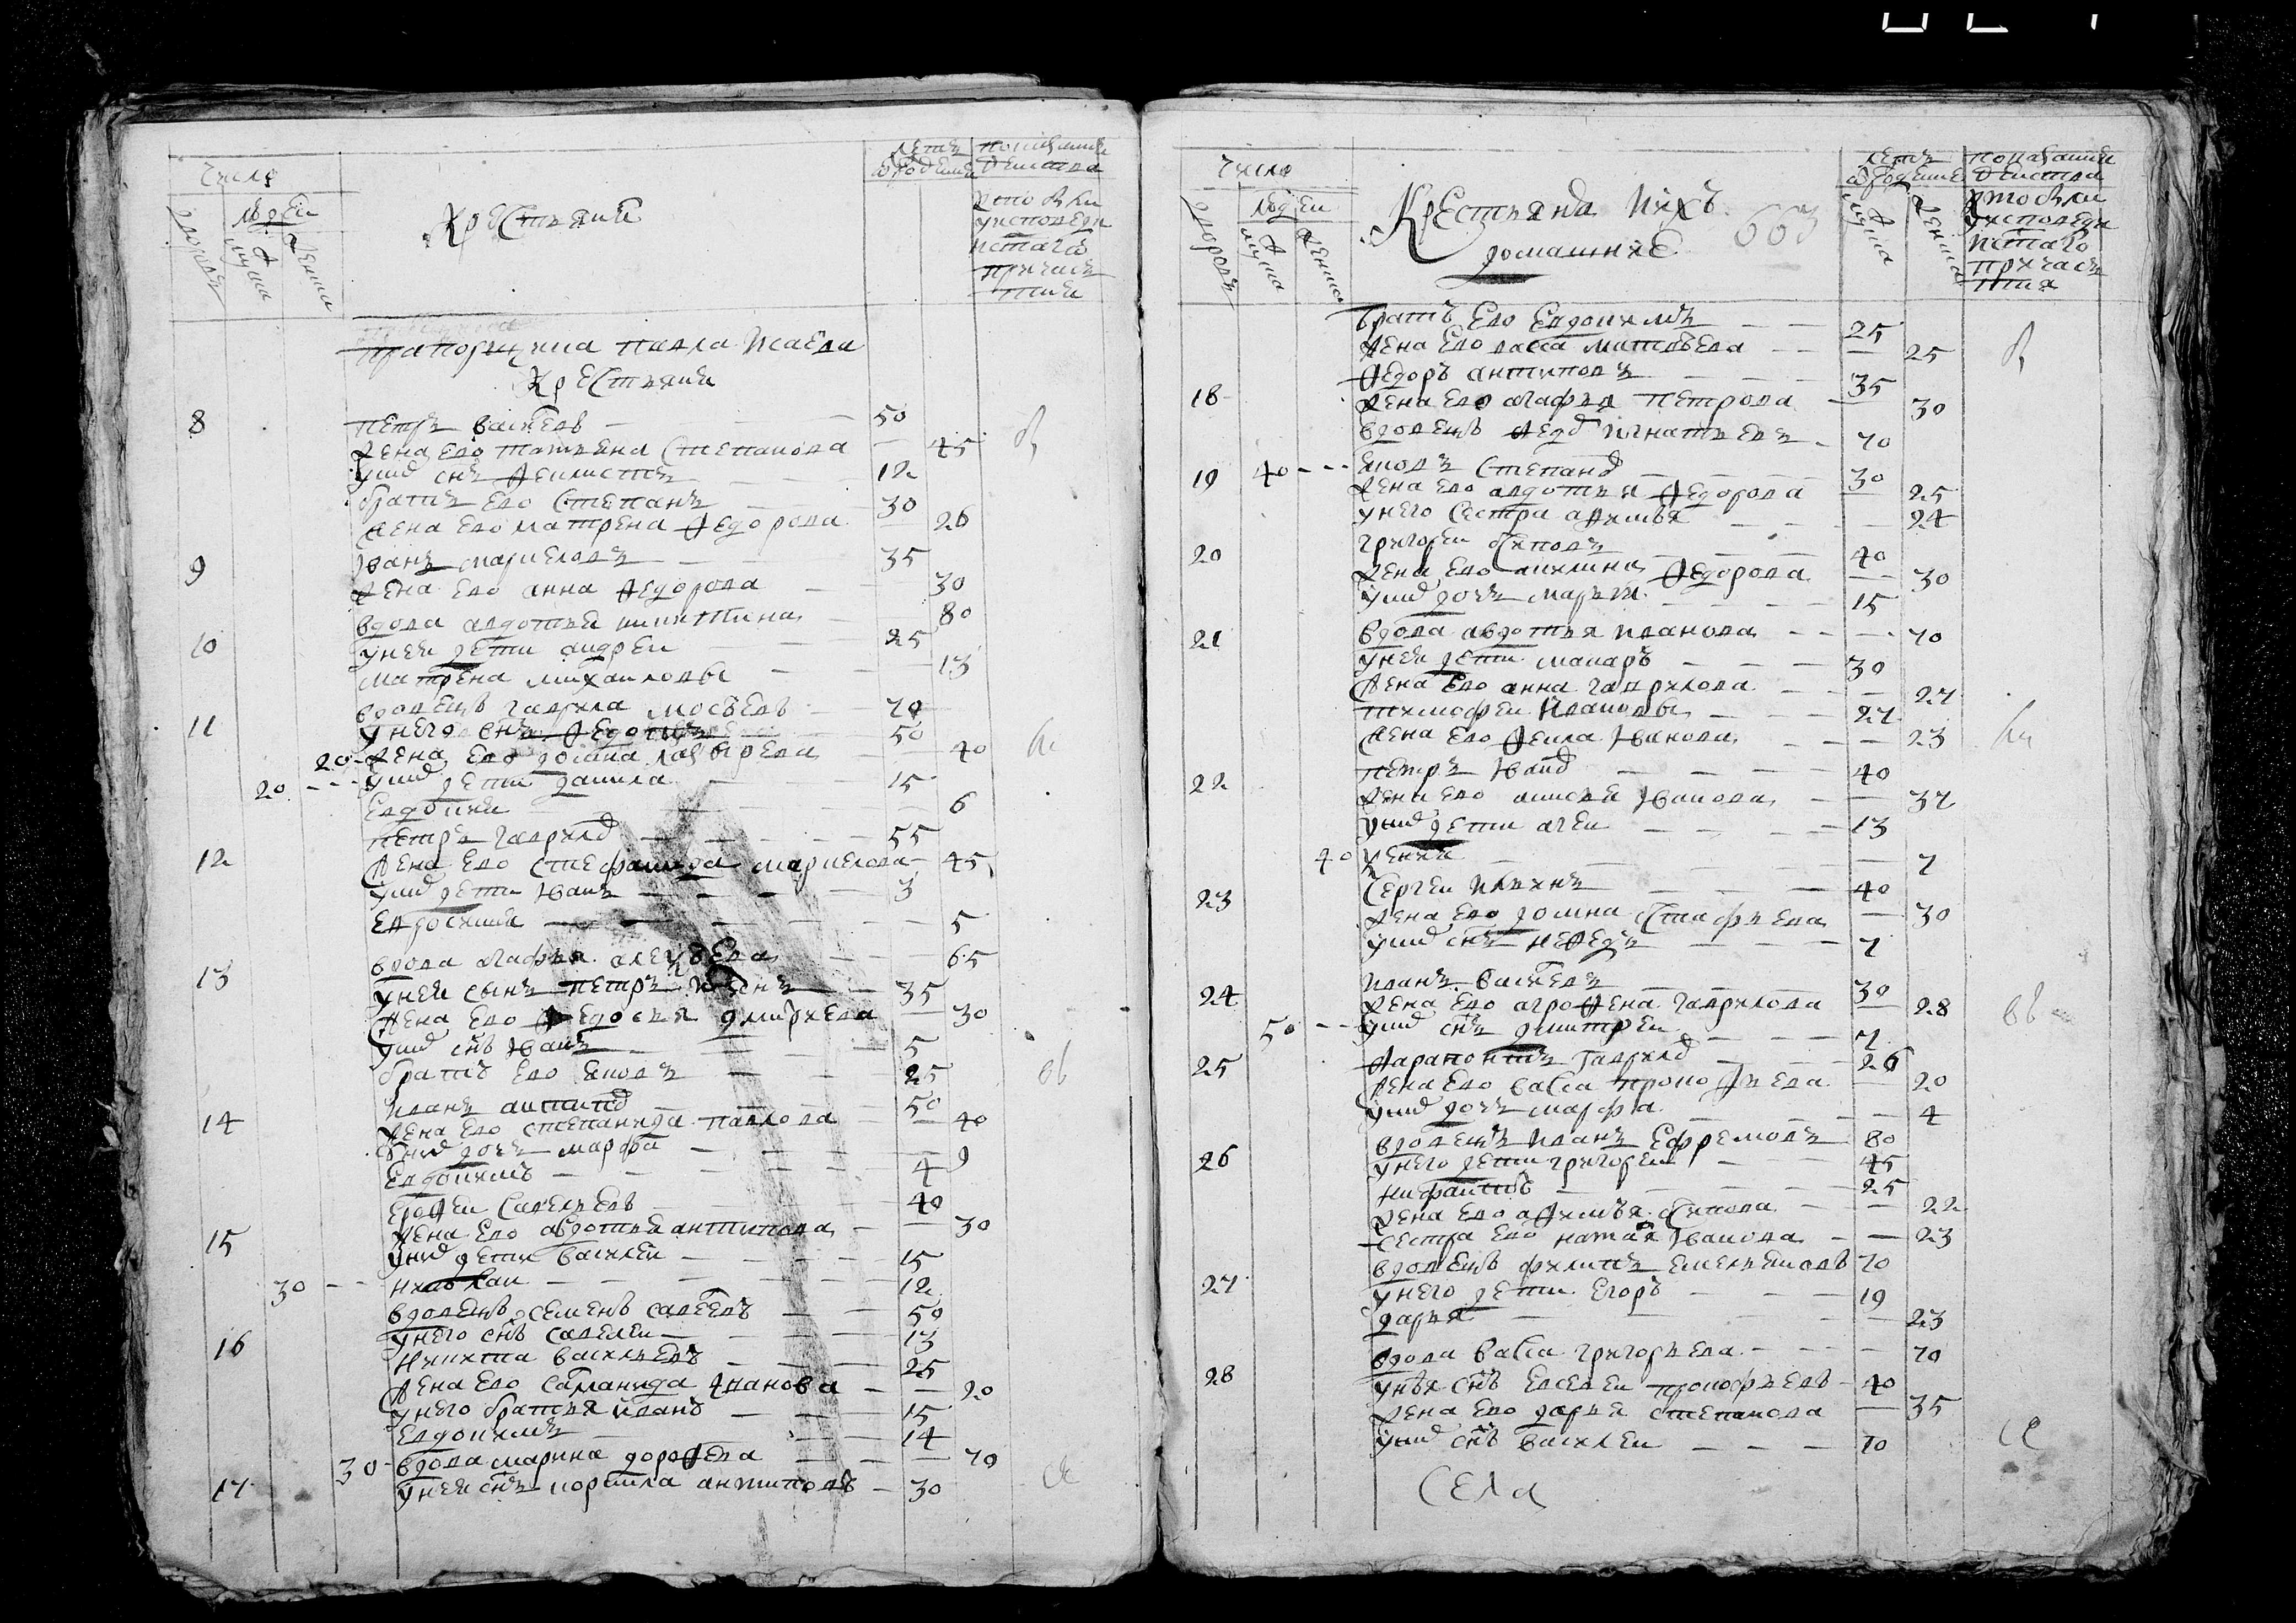 Число
людеи
дворовъ
мужа
женска
Крестьяния
летъ
от рождения
показания
действа
кто был
у исповеди
и стаго
причас
тия
прапорщика павла Исаева
Крестьяния
8 петръ васильевъ 50
жена его татьяна степанова 45
у них снъ феклистъ 12
братъ его степанъ 30
жена его матрена федорова 26
9 Иванъ маркеловъ 35
жена его анна федорова 30
вдова авдотья никитина 80
10 у неи дети андреи 25
матрена михаиловы 13
11 вдовецъ гаврила мосеевъ 70
у него снъ федотъ 50
20 жена его домна лазырева 40
20 у них дети данила 15
Евдокия 6
12 петръ гаврилов 55
жена его стефанида маркелова 45
у них дети Иванъ 3
Евросиния 5
13 вдова агафья алексеева 65
у неи сынъ петръ 35
жена его федосья дмитреева 30
у них снъ Иванъ 5
братъ его яковъ 25
14 иванъ антипов 50
жена его степанида павлова 40
у них дочь марфа 9
Евдокимъ 4
15 Ерофеи савельевъ 40
жена его авдотья антипова 30
у них дети василеи 15
30 николаи 12
16 вдовецъ семенъ савеевъ 50
у него снъ савелеи 13
никита васильевъ 25
жена его саманида Иванова 20
у него братья иванъ 15
Евдокимъ 14
30 вдова марина дорофеева 70
17 у неи снъ корнила антиповъ 30
Число
людеи
дворовъ
мужа
женска
Крестьяна ихъ
домашние
663
летъ
от рождения
мужа
женска
показания
действа
кто был
у исповеди
и стаго
причас
тия
братъ его Евдокимъ 25
жена его васса матвеева 25
18 федоръ антиповъ 35
жена его агафья петрова 30
вдовецъ федор игнатьевъ 70
19 40 яковъ степанов 30
жена его авдотья федорова 25
у него сестра афимья 24
20 григореи осиповъ 40
жена его акилина федорова 30
у них дочь марья 15
21 вдова авдотья иванова 70
у неи дети макаръ 30
жена его анна гаврилова 27
тимофеи ивановы 27
жена его фекла Иванова 23
22 петръ Иванов 40
жена его анисья Иванова 37
у них дети агеи 13
40 ксения 7
23 сергеи ильинъ 40
жена его домна Стафеева 30
у них снъ нефедъ 7
24 иванъ васильевъ 30
жена его агрофена гаврилова 28
50 у них снъ дмитреи 7
25 фарапонтъ гаврилов 26
жена его васса прокофьева 20
у них дочь марфа 4
26 вдовецъ иванъ Ефремовъ 80
у него дети григореи 45
нифантъ 25
жена его афимья осипова 22
сестра его наталья Иванова 23
27 вдовецъ филипъ Емельяновъ 70
у него дети Егоръ 19
дарья 23
28 вдова васса григорьева 70
у нея снъ Евсевеи прокофьевъ 40
жена его дарья степанова 35
у них снъ василеи 10
села